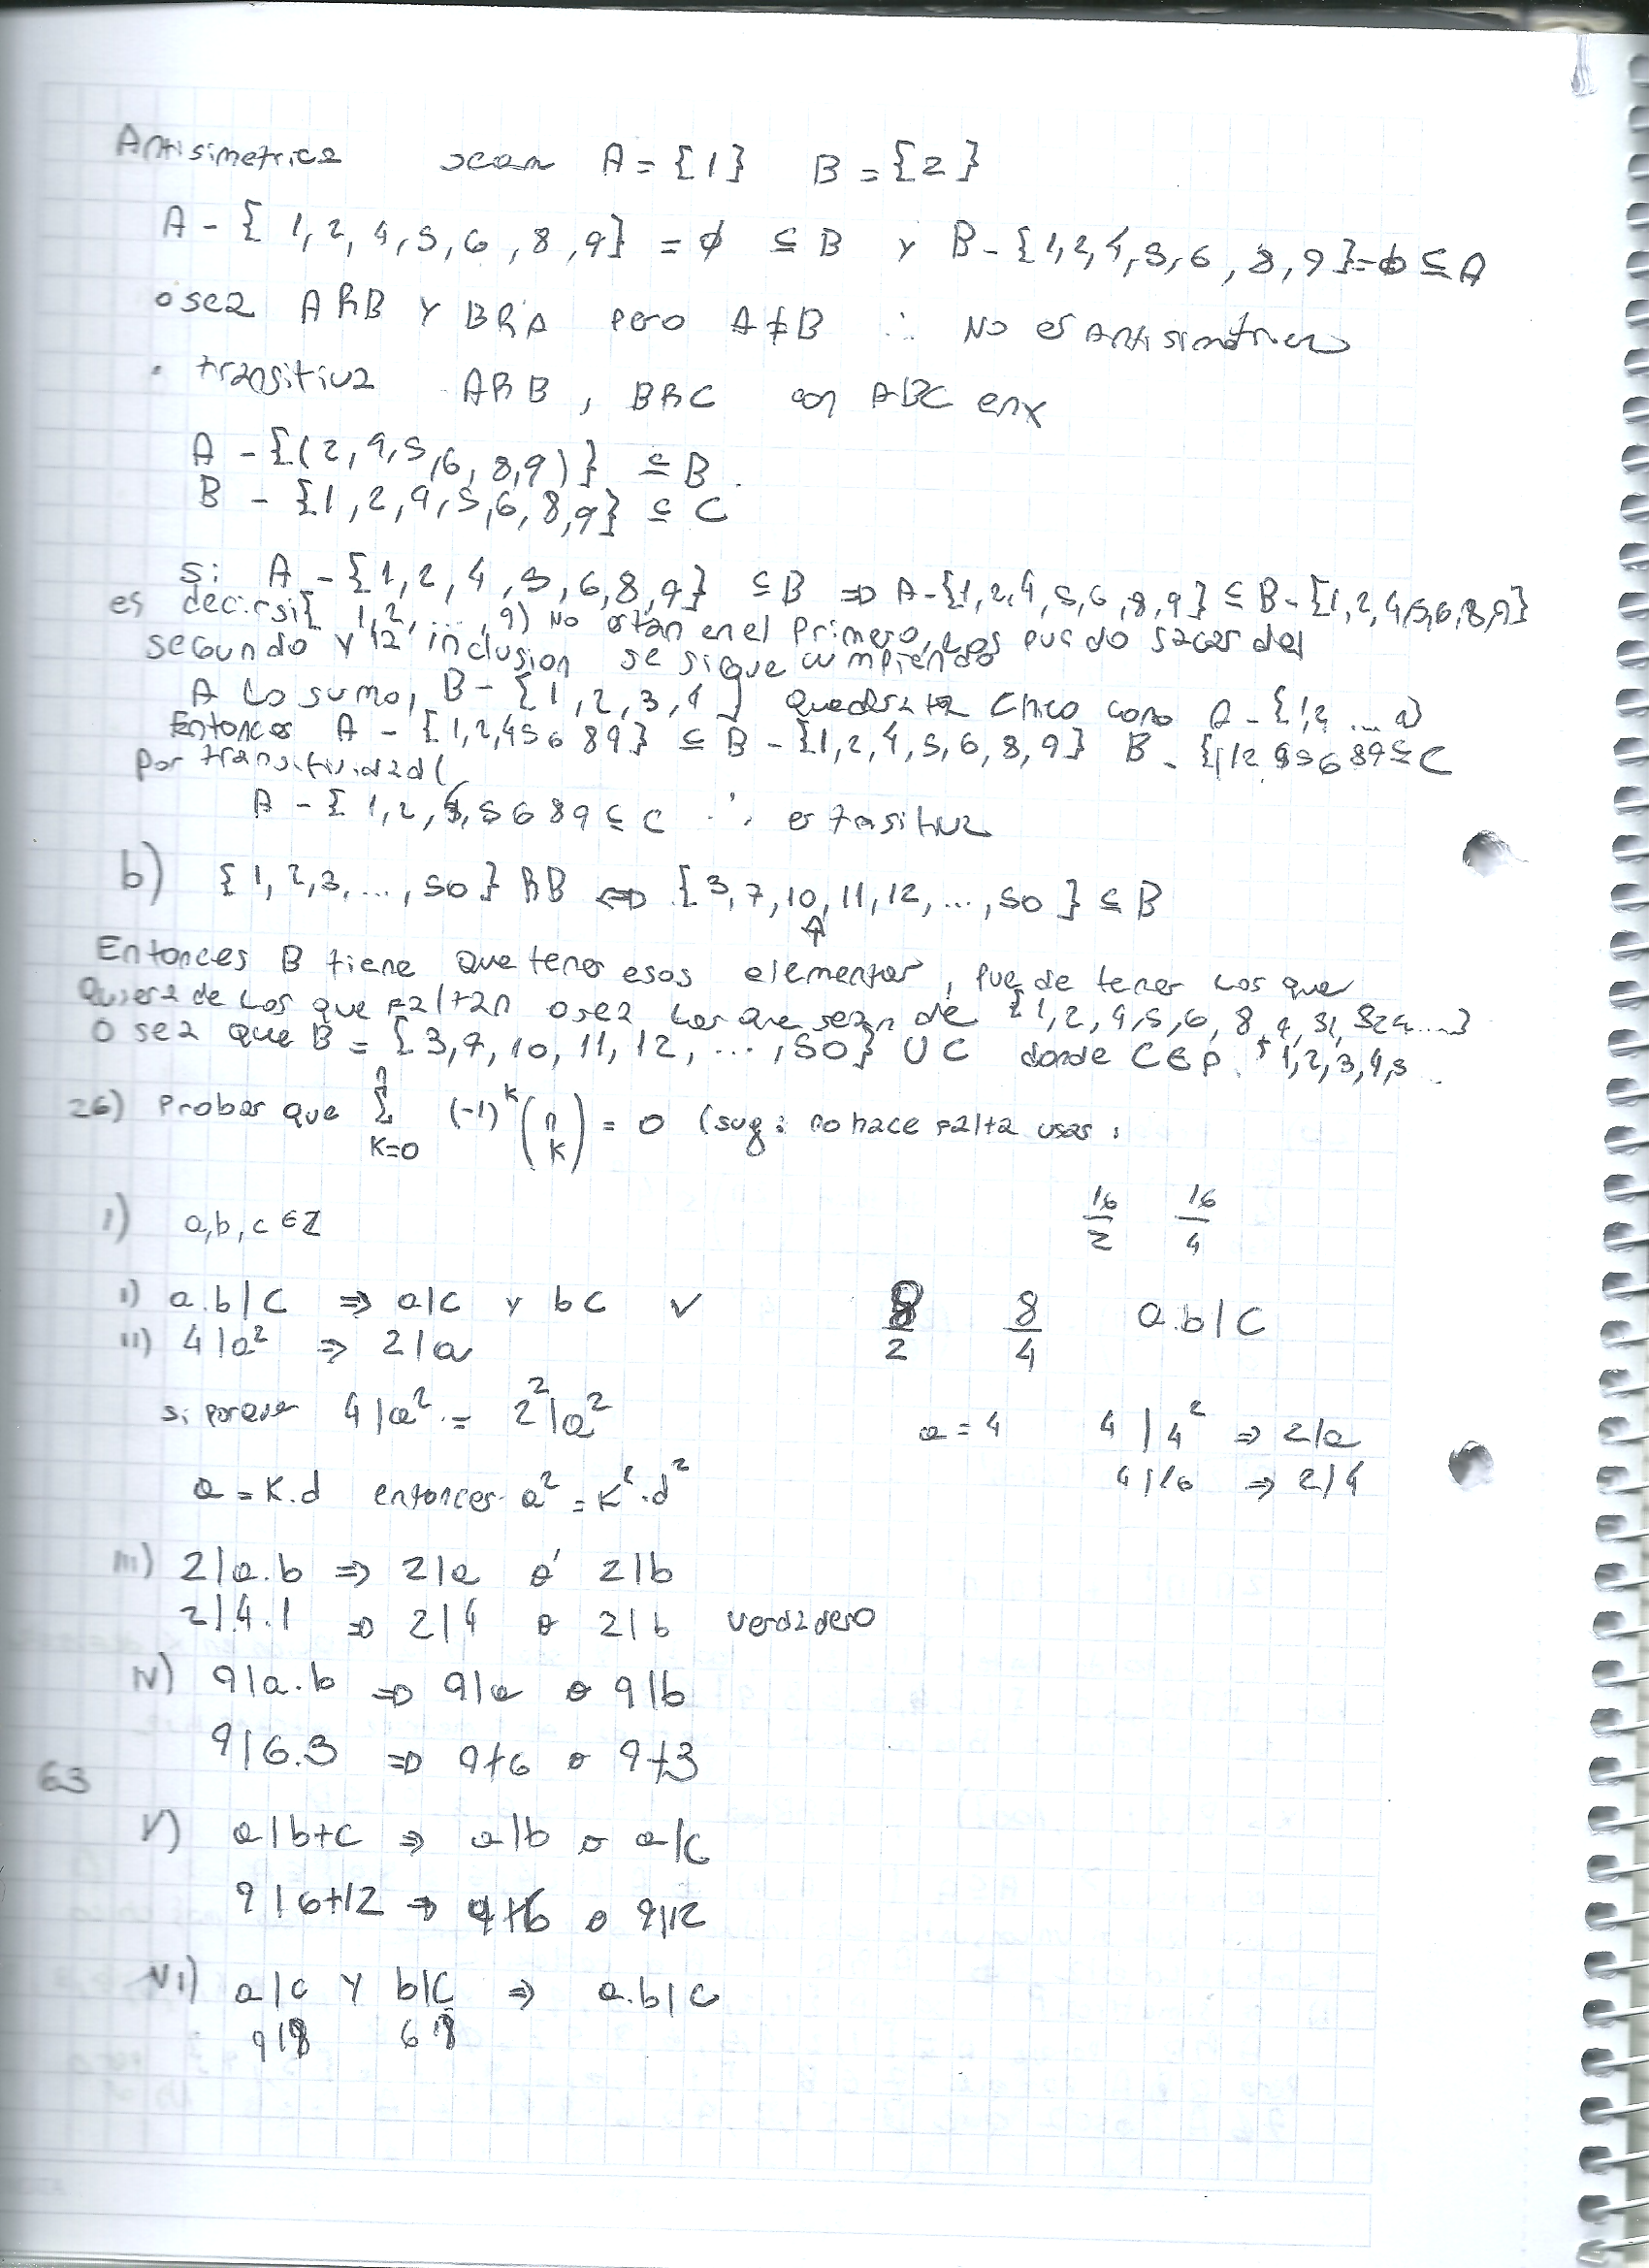 Antisimetrica sean A = {1} B = {2}
A - { 1, 2, 4, 5, 6, 8, 9} = ∅ ⊆ B Y B - {1,2,4,5,6,8,9} = ∅ ⊆ A
o sea ARB Y BRA pero A ≠ B ∴ No es Antisimetrica
• transitiva ARB, BRC con ABC en x
A - {(2,4,5,6,8,9)} ⊆ B.
B - {1,2,4,5,6,8,9} ⊆ C
Si A - {1,2,4,5,6,8,9} ⊆ B ⇒ A-{1,2,4,5,6,8,9} ⊆ B-{1,2,4,5,6,8,9}
es decir si { 1,2,...,9) No estan en el Primero, Los puedo sacar del
segundo y la inclusion se sigue cumpliendo
A Lo sumo, B - {1,2,3,4} Chico como A - {1,2 ...
Entonces A - {1,2,4 5 6 8 9} ⊆ B - {1,2,4,5,6,8,9} B - {1 2 4 5 6 8 9 ⊆ C
Por transitividad (
A - { 1,2,4,5 6 8 9 ⊆ C ∴ es tasitiva
b) {1,2,3,...,50} RB ⇔ {3,7,10,11,12,...,50} ⊆ B
Entonces B tiene Que tener esos elementos, puede tener Los que
Quiera de Los que Faltan o sea Los que sean de {1,2,4,5,6,8,9,51,52,...}
O sea que B = {3,7,10,11,12,...,50} ∪ C donde C ∈ P. 1,2,3,4,5..
26) Probar que n Σ K=0 (-1)^k (n k) = 0 (sug: no hace Falta usar:
1) a,b,c ∈ Z 16/2 16/4
i) a.b|C ⇒ a|c y bc ✓ 8/2 8/4 a.b|C
ii) 4|a² ⇒ 2|a
si porque 4|a² = 2²|a² a = 4 4|4² ⇒ 2|a
a = K.d entonces a² = K².d² 4|16 ⇒ 2|4
iii) 2|a.b ⇒ 2|a ó 2|b
2|4.1 ⇒ 2|4 o 2|b verdadero
IV) 9|a.b ⇒ 9|a o 9|b
9|6.3 ⇒ 9∤6 o 9∤3
63
V) a|b+c ⇒ a|b o a|c
9|6+12 ⇒ 9∤6 o 9|12
VI) a|c Y b|C ⇒ a.b|c